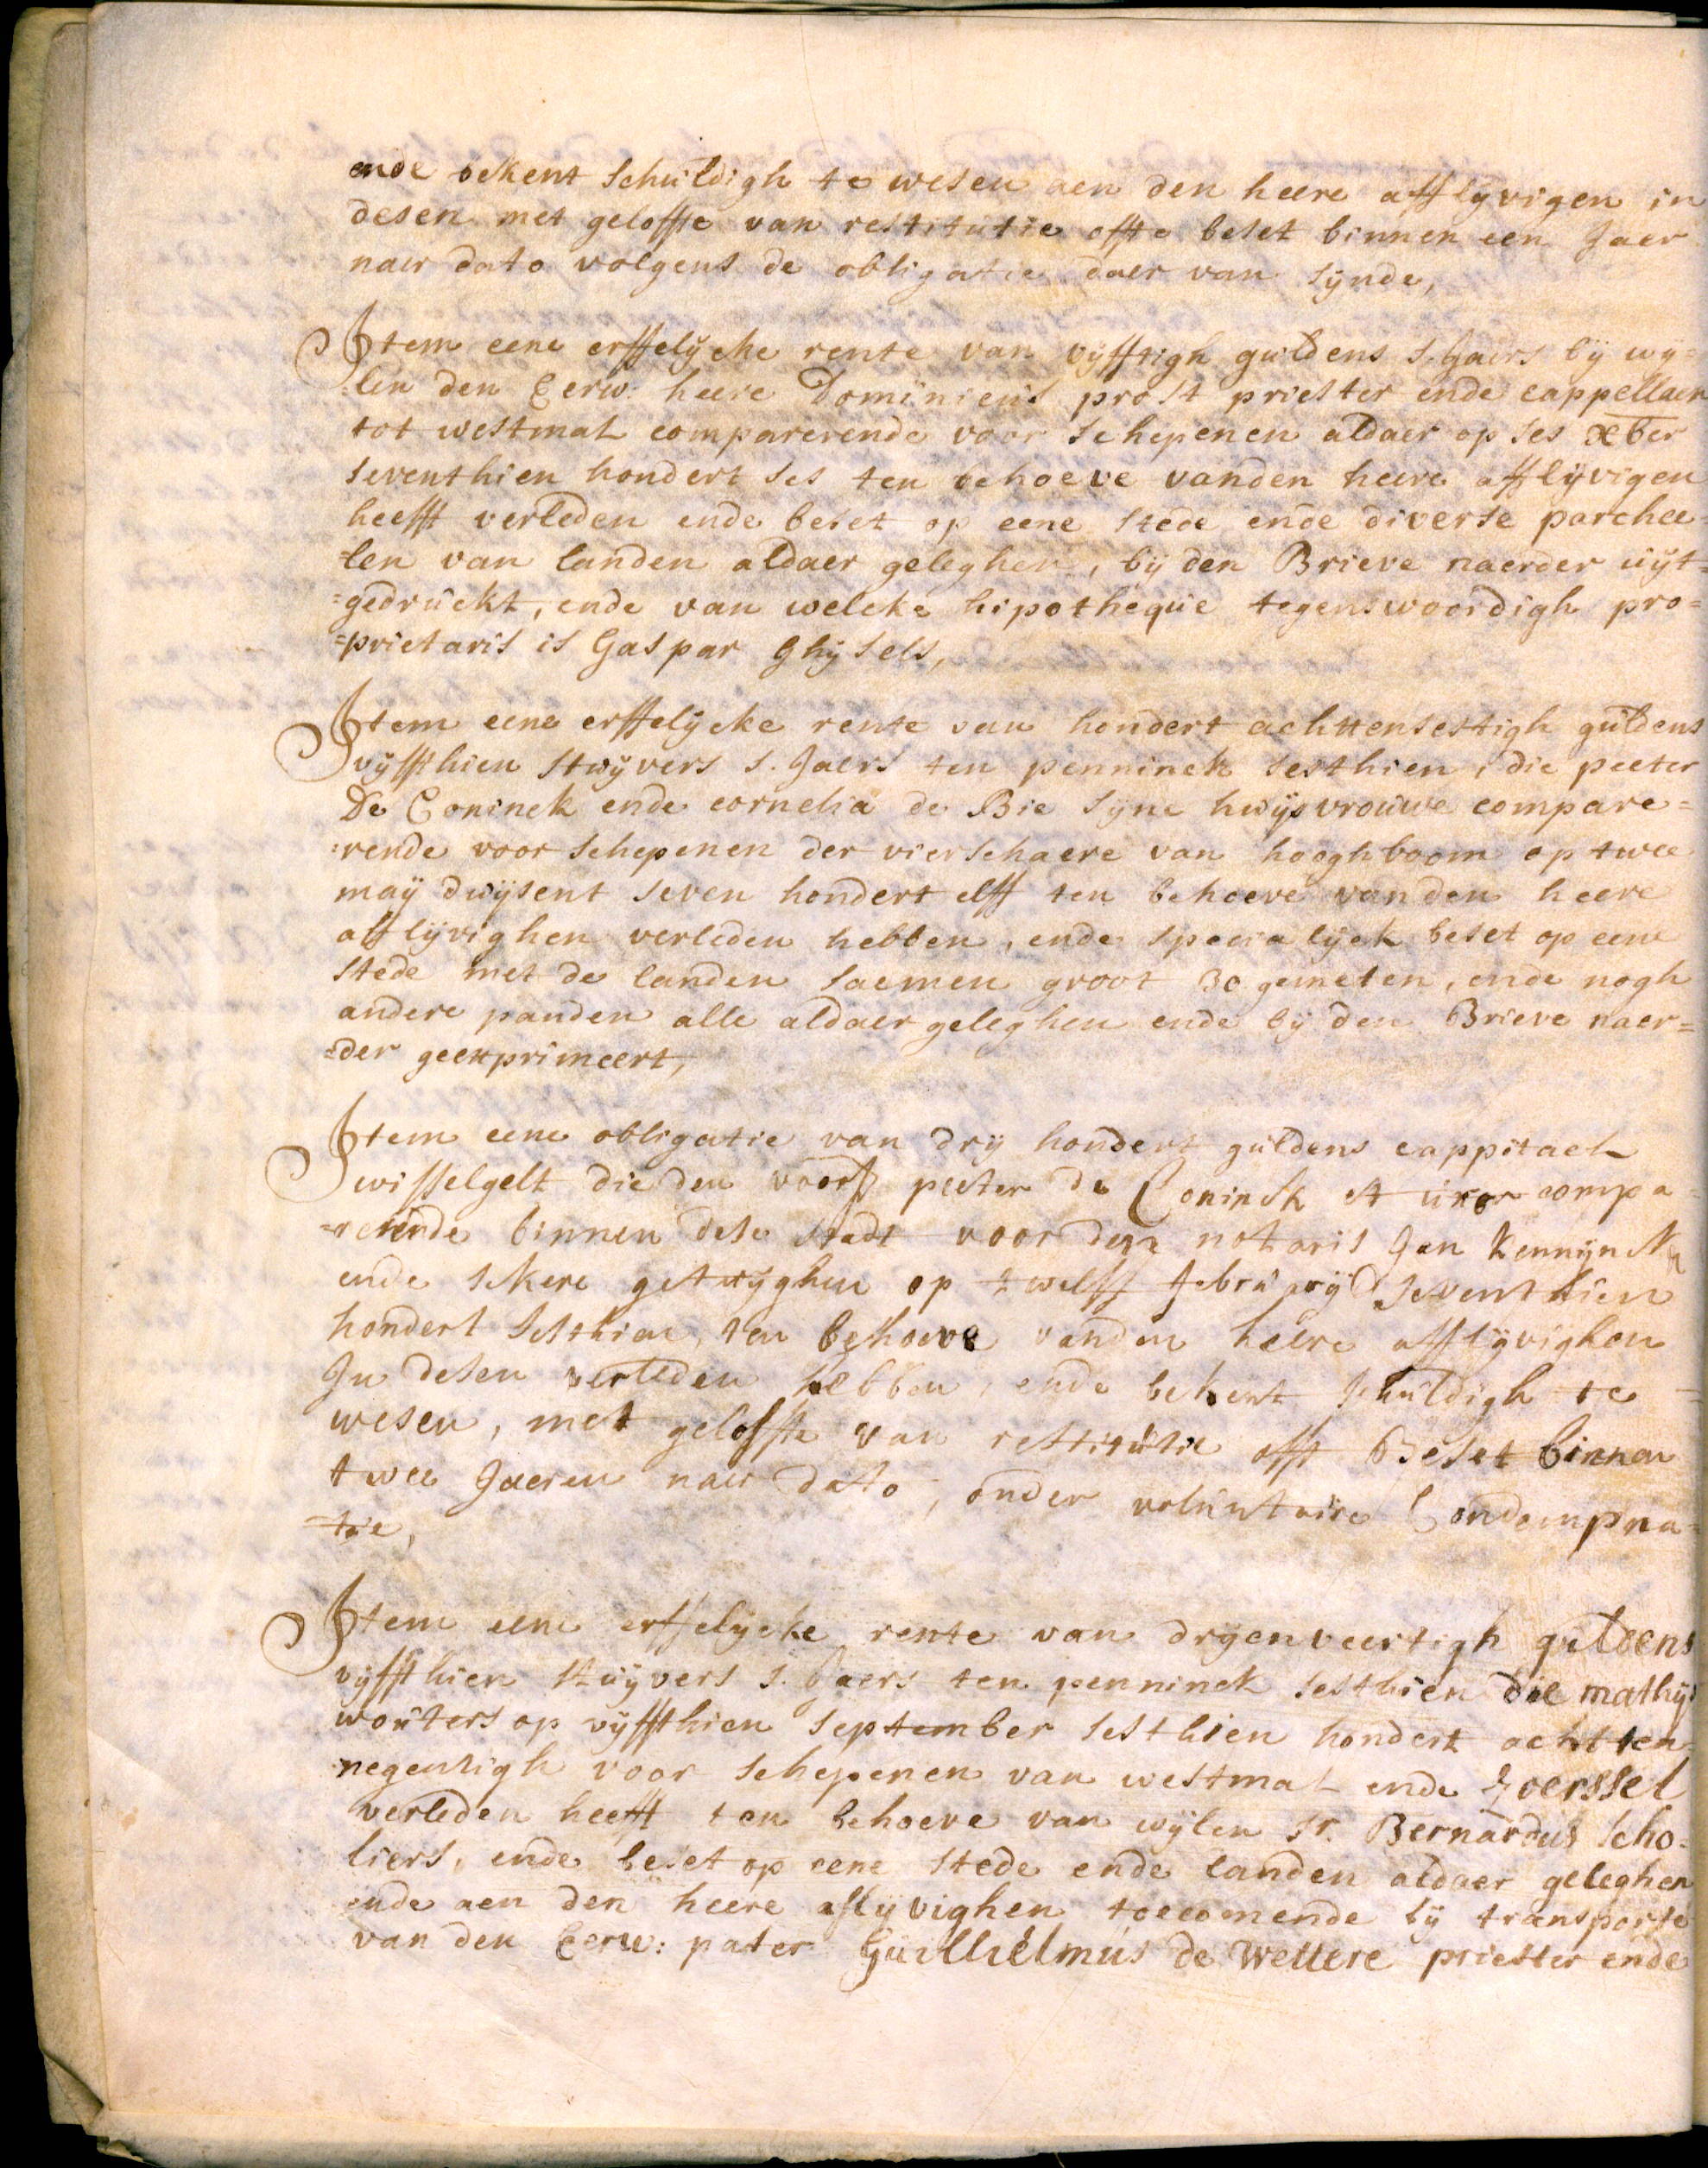 ende bekent schuldigh te wesen aen den heere afflyvigen in
desen met geloffte van restitutie offte beset binnen een Jaer
naer dato volgens de obligatie daer van synde,
Item eene erffelycke rente van vyfftigh guldens s. Jaers by wy=
=len den Eerw: heere Dominicus prost priester ende cappellaen
tot westmal comparerende voor schepenen aldaer op ses xber
seventhien hondert ses ten behoeve vanden heere afflyvigen
heefft verleden ende beset op eene stede ende diverse parchee
=len van landen aldaer geleghen, by den Brieve naerder uyt=
=gedruckt, ende van welcke hipotheque tegenswoordigh pro=
=prietaris is Gaspar Ghysels,
Item eene erffelycke rente van hondert achttensestigh guldens
vyffthien stuyvers s. Jaers ten penninck sesthien, die peeter
De Coninck ende cornelia de Bie syne huysvrouwe compare=
=rende voor schepenen der vierschaere van hooghboom op twee
may duysent seven hondert elff ten behoeve vanden heere
afflyvighen verleden hebben, ende specialyck beset op eene
stede met de landen saemen groot 30 gemeten, ende nogh
andere panden alle aldaer geleghen ende by den Brieve naer=
=der geexprimeert,
Item eene obligatie van dry hondert guldens cappitael
wisselgelt die den voors peeter de Coninck et uxor compa=
=rerende binnen dese stadt voor den notaris Jan Kennynck
ende sekere getuyghen op twelff february seventhien
hondert sesthien, ten behoeve vanden heere afflyvighen
In desen verleden hebben, ende bekent schuldigh te
wesen, met geloffte van restitutie offt Beset binnen
twee Jaeren naer dato, onder voluntaire Condempna=
tie,
Item eene erffelycke rente van dryenveertigh guldens
vyffthien stuyvers s. Jaers ten penninck sesthien die mathys
wouters op vyffthien september sesthien hondert achtten
negentigh voor schepenen van westmal ende Zoerssel
verleden heefft ten behoeve van wylen sr. Bernardus Scho=
liers, ende beset op eene stede ende landen aldaer geleghen
ende aen den heere aflyvighen toecomende by transporte
van den Eerw: pater Guillielmus de Wellere priester ende